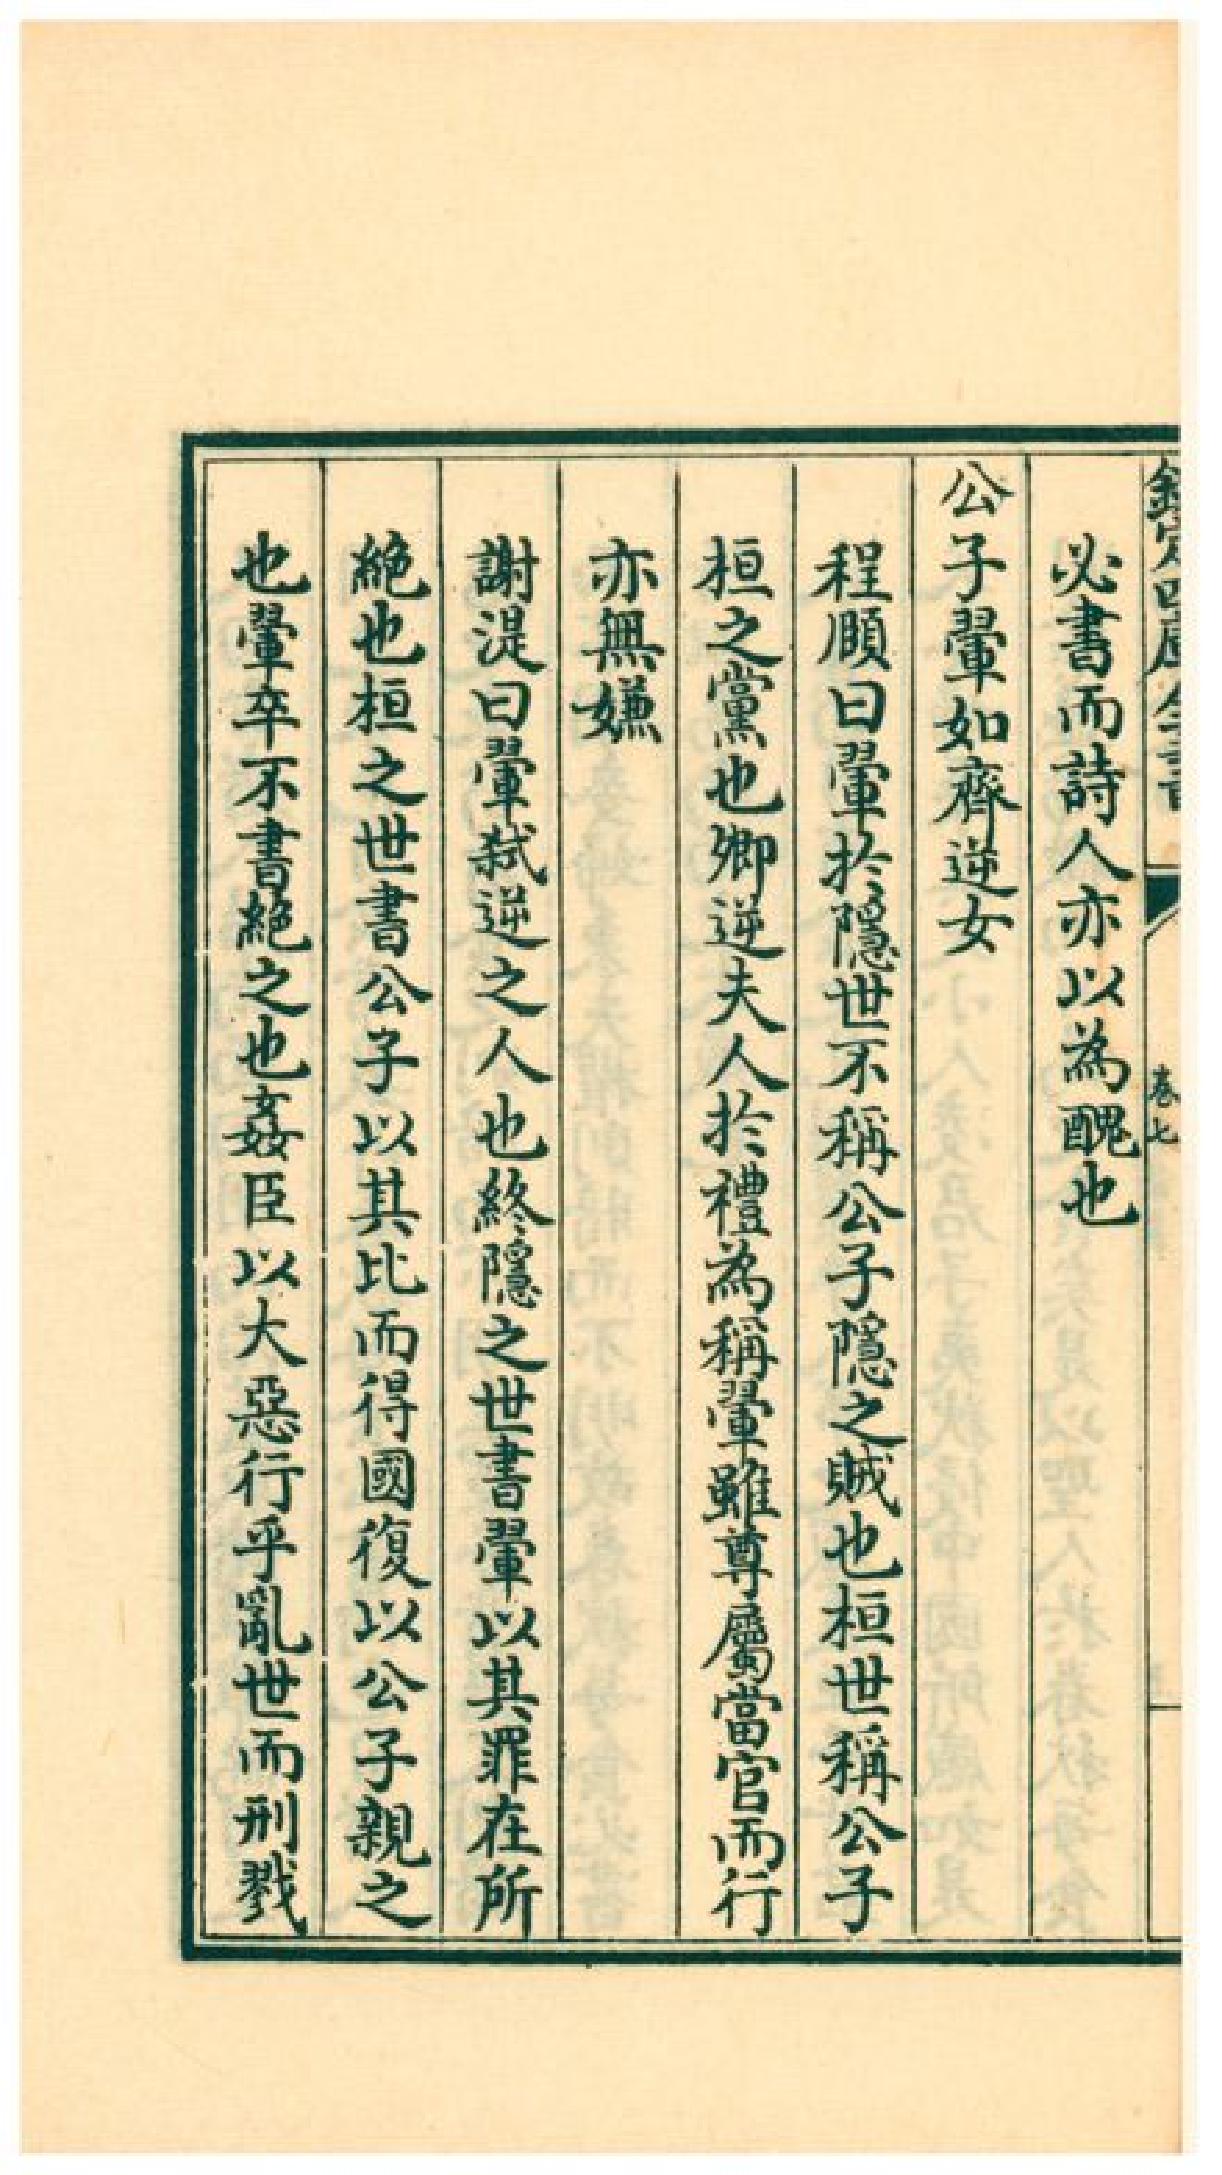 欽定四庫全書
卷七
必書而詩人亦以為醜也
公子翬如齊逆女
程頤曰翬於隱世不稱公子隱之賊也桓世稱公子
桓之黨也卿逆夫人於禮為稱翬雖尊屬當官而行
亦無嫌
謝湜曰翬弑逆之人也終隱之世書翬以其罪在所
絶也桓之世書公子以其比而得國復以公子親之
也翬卒不書絶之也姦臣以大惡行乎亂世而刑戮